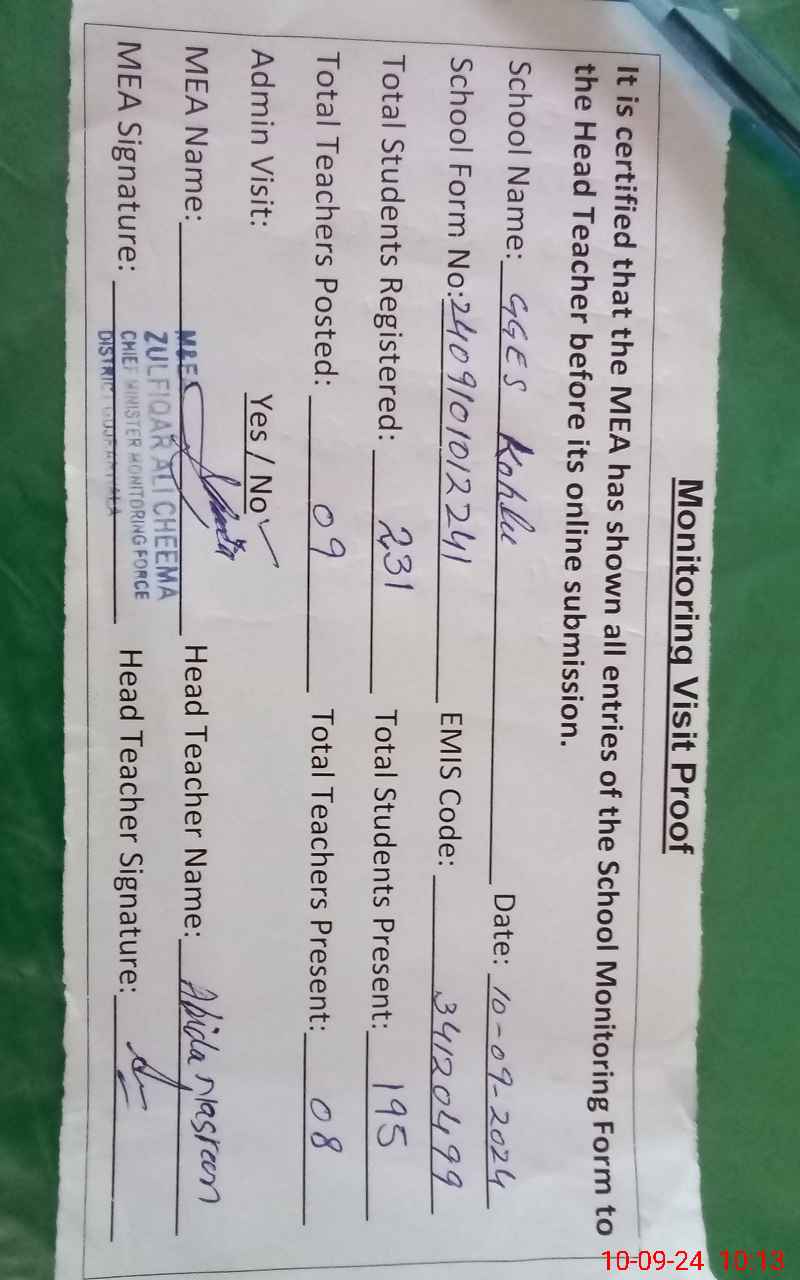 Monitoring Visit Proof
It is certified that the MEA has shown all entries of the School Monitoring Form to
the Head Teacher before its online submission.
School Name: GGES Kohlu Date: 10-09-2024
School Form No: 2409101012241 EMIS Code: 34120499
Total Students Registered: 231 Total Students Present: 195
Total Teachers Posted: 09 Total Teachers Present: 08
Admin Visit: Yes / No ✓
MEA Name: Head Teacher Name: Abida Nasreen
MEA Signature: Head Teacher Signature:
ZULFIQAR ALI CHEEMA
CHIEF MINISTER MONITORING FORCE
DISTRICT
10-09-24 10:13